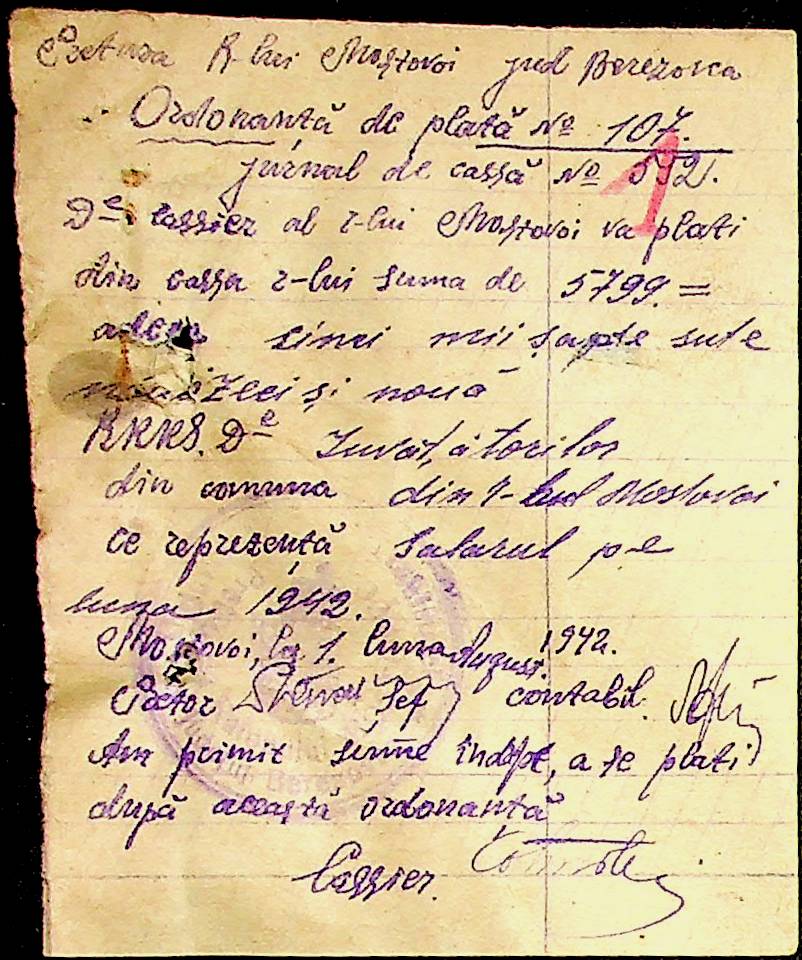 Pretura R-lui Mostovoi jud Berezovca
Ordonanță de plată № 107.
jurnal de cassă № 592.
1
De cassier al r-lui Mostovoi va plati
din cassa r-lui suma de 5799 =
adeca cinci mii șapte sute
nouăzeci și nouă
De Învățătorilor
din comuna din r-nul Mostovoi
ce reprezență salarul pe
luna 1942.
Mostovoi, la 1. luna August. 1942.
Pretor Șef contabil
Am primit sume îndrpt, a se plati
după această ordonanță
Cassier.